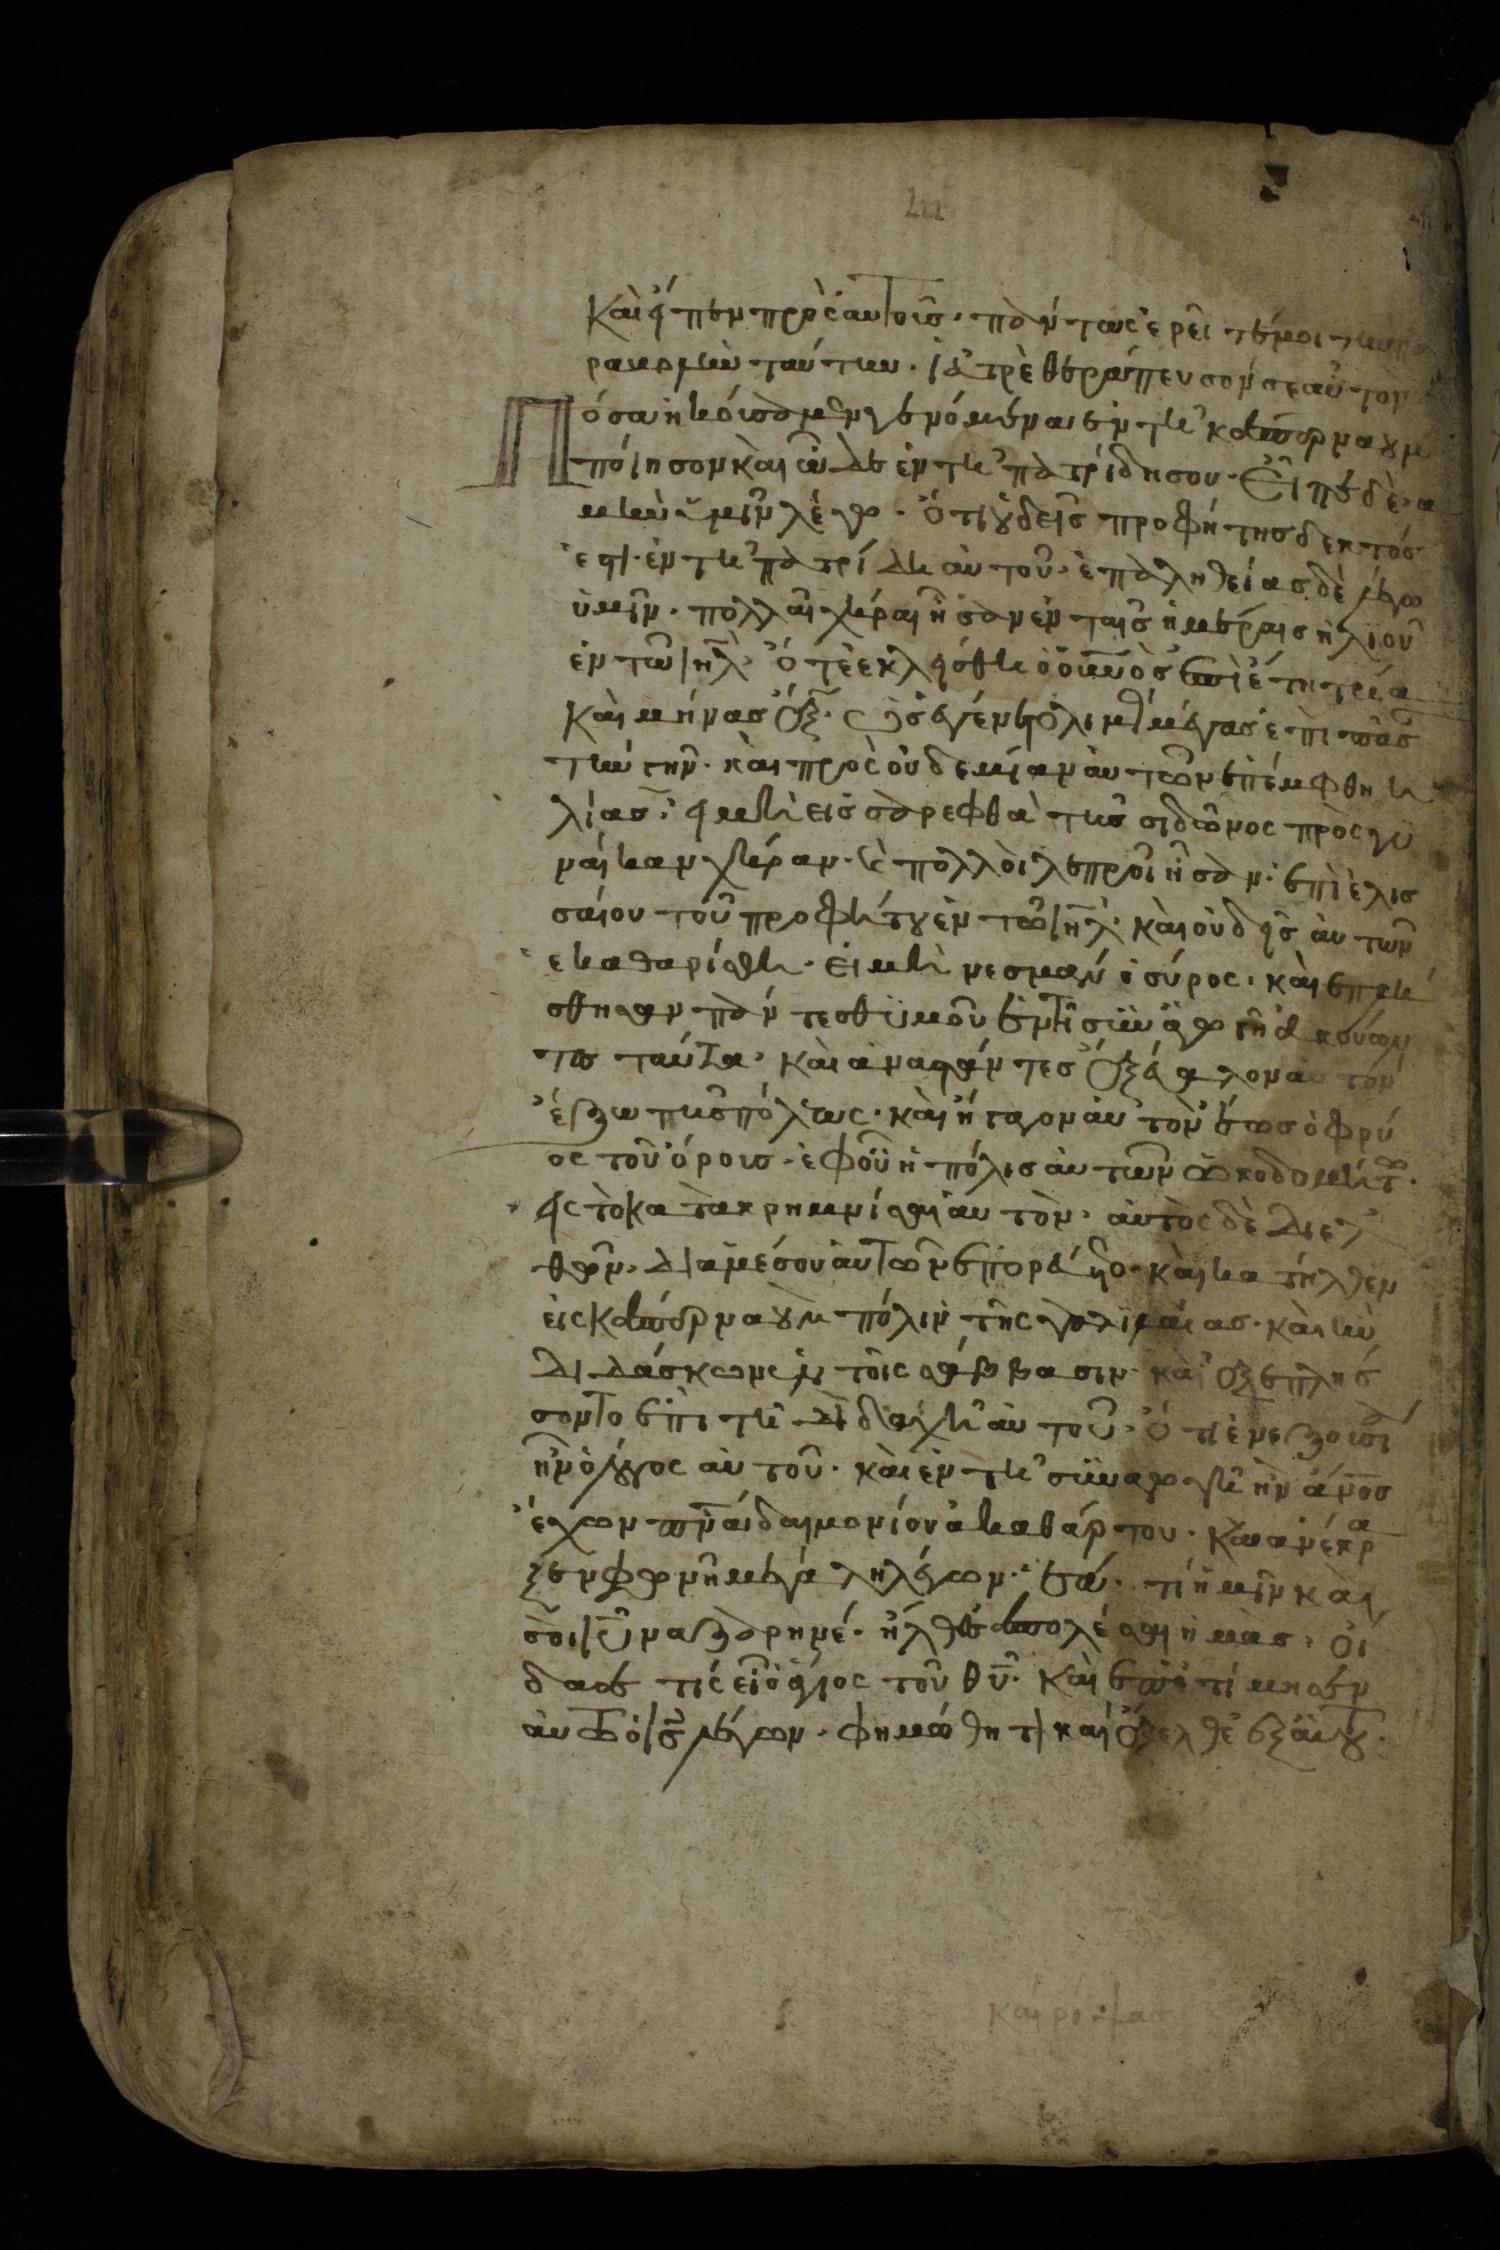 Καὶ εἶπεν πρὸς αυτοῖς· πάντως ἐρεῖτέ μοι τὴν πα
ραβολὴν ταύτην· ἰατρὲ θεράπευσον σεαυτόν
Πόσα ἠκούσαμεν γενόμενα ἐν τῇ καπερναουμ
ποίησον καὶ ὧδε ἐν τῇ πατρίδη σου· Εἶπε δὲ· α
μὴν ὑμῖν λέγω· ὅτι οὐδεὶς προφήτης δεκτός
ἐστιν ἐν τῇ πατρίδι αὐτοῦ· ἐπαληθείας δὲ λέγω
ὑμῖν· πολλαὶ χῆραι ἦσαν ἐν ταῖς ἡμέραις ἠλιοῦ
ἐν τῶ ιηλ· ὅτε ἐκλείσθη ὁ οὐνος ἐπὶ ἔτη τρία
Καὶ μῆνας ἕξ· ὡς ἐγένετο λιμὸς μέγας ἐπὶ πᾶσ
τὴν γῆν· καὶ πρὸς οὐδεμίαν αὐτῶν ἐπέμφθη ἠ
λίας· εἰ μὴ εἰς σαρεφθὰ τῆς σιδῶνος πρὸς γυ
ναίκαν χήραν· καὶ πολλοὶ λεπροὶ ἦσαν· ἐπὶ ἐλισ
σαίου τοῦ προφήτου ἐν τῶ ιηλ· καὶ οὐδεὶς αὐτῶν
ἐκαθαρίσθη· εἰ μὴ νεεσμαν ὁ σύρος· καὶ ἐπλή
σθησαν πάντες θυμοῦ ἐν τῇ συναγωγῇ ἀκούον
τες ταῦτα· Καὶ ἀναστάντες ἐξέβαλον αὐτόν
ἔξω τῆς πόλεως· καὶ ἤγαγον αὐτὸν ἕως ὀφρύ
ος τοῦ ὄρους· ἐφ οὗ ἡ πόλις αὐτῶν ὠκοδόμητο·
εἰς τὸ κατακρημνίσαι αὐτόν· αὐτὸς δὲ διελ
θὼν· διὰ μέσου αὐτῶν ἐπορεύετο· καὶ κατῆλθεν
εἰς καπερναουμ πόλιν τῆς γαλιλαίας· καὶ ἦν
διδάσκων ἐν τοῖς σάββασιν· καὶ ἐξεπλήσ
σοντο ἐπὶ τῇ διδαχῇ αὐτοῦ· ὅτι ἐν ἐξουσίᾳ
ἦν ὁ λόγος αὐτοῦ· καὶ ἐν τῇ συναγωγῇ ἦν ἄνος
ἔχων πνα δαιμονίου ἀκαθάρτου· Καὶ ἀνέκρα
ξεν φωνῇ μεγάλη λέγων· ἔα· τί ἡμῖν καὶ
σοὶ ιυ ναζαρηνέ· ἦλθες ἀπολέσαι ἡμᾶς· οἶ
δα σε τίς εἶ ὁ ἅγιος τοῦ θυ· Καὶ ἐπετίμησεν
αὐτῶ ὁ ις λέγων· φημώθητι καὶ ἔξελθε ἐξ αὐτοῦ·